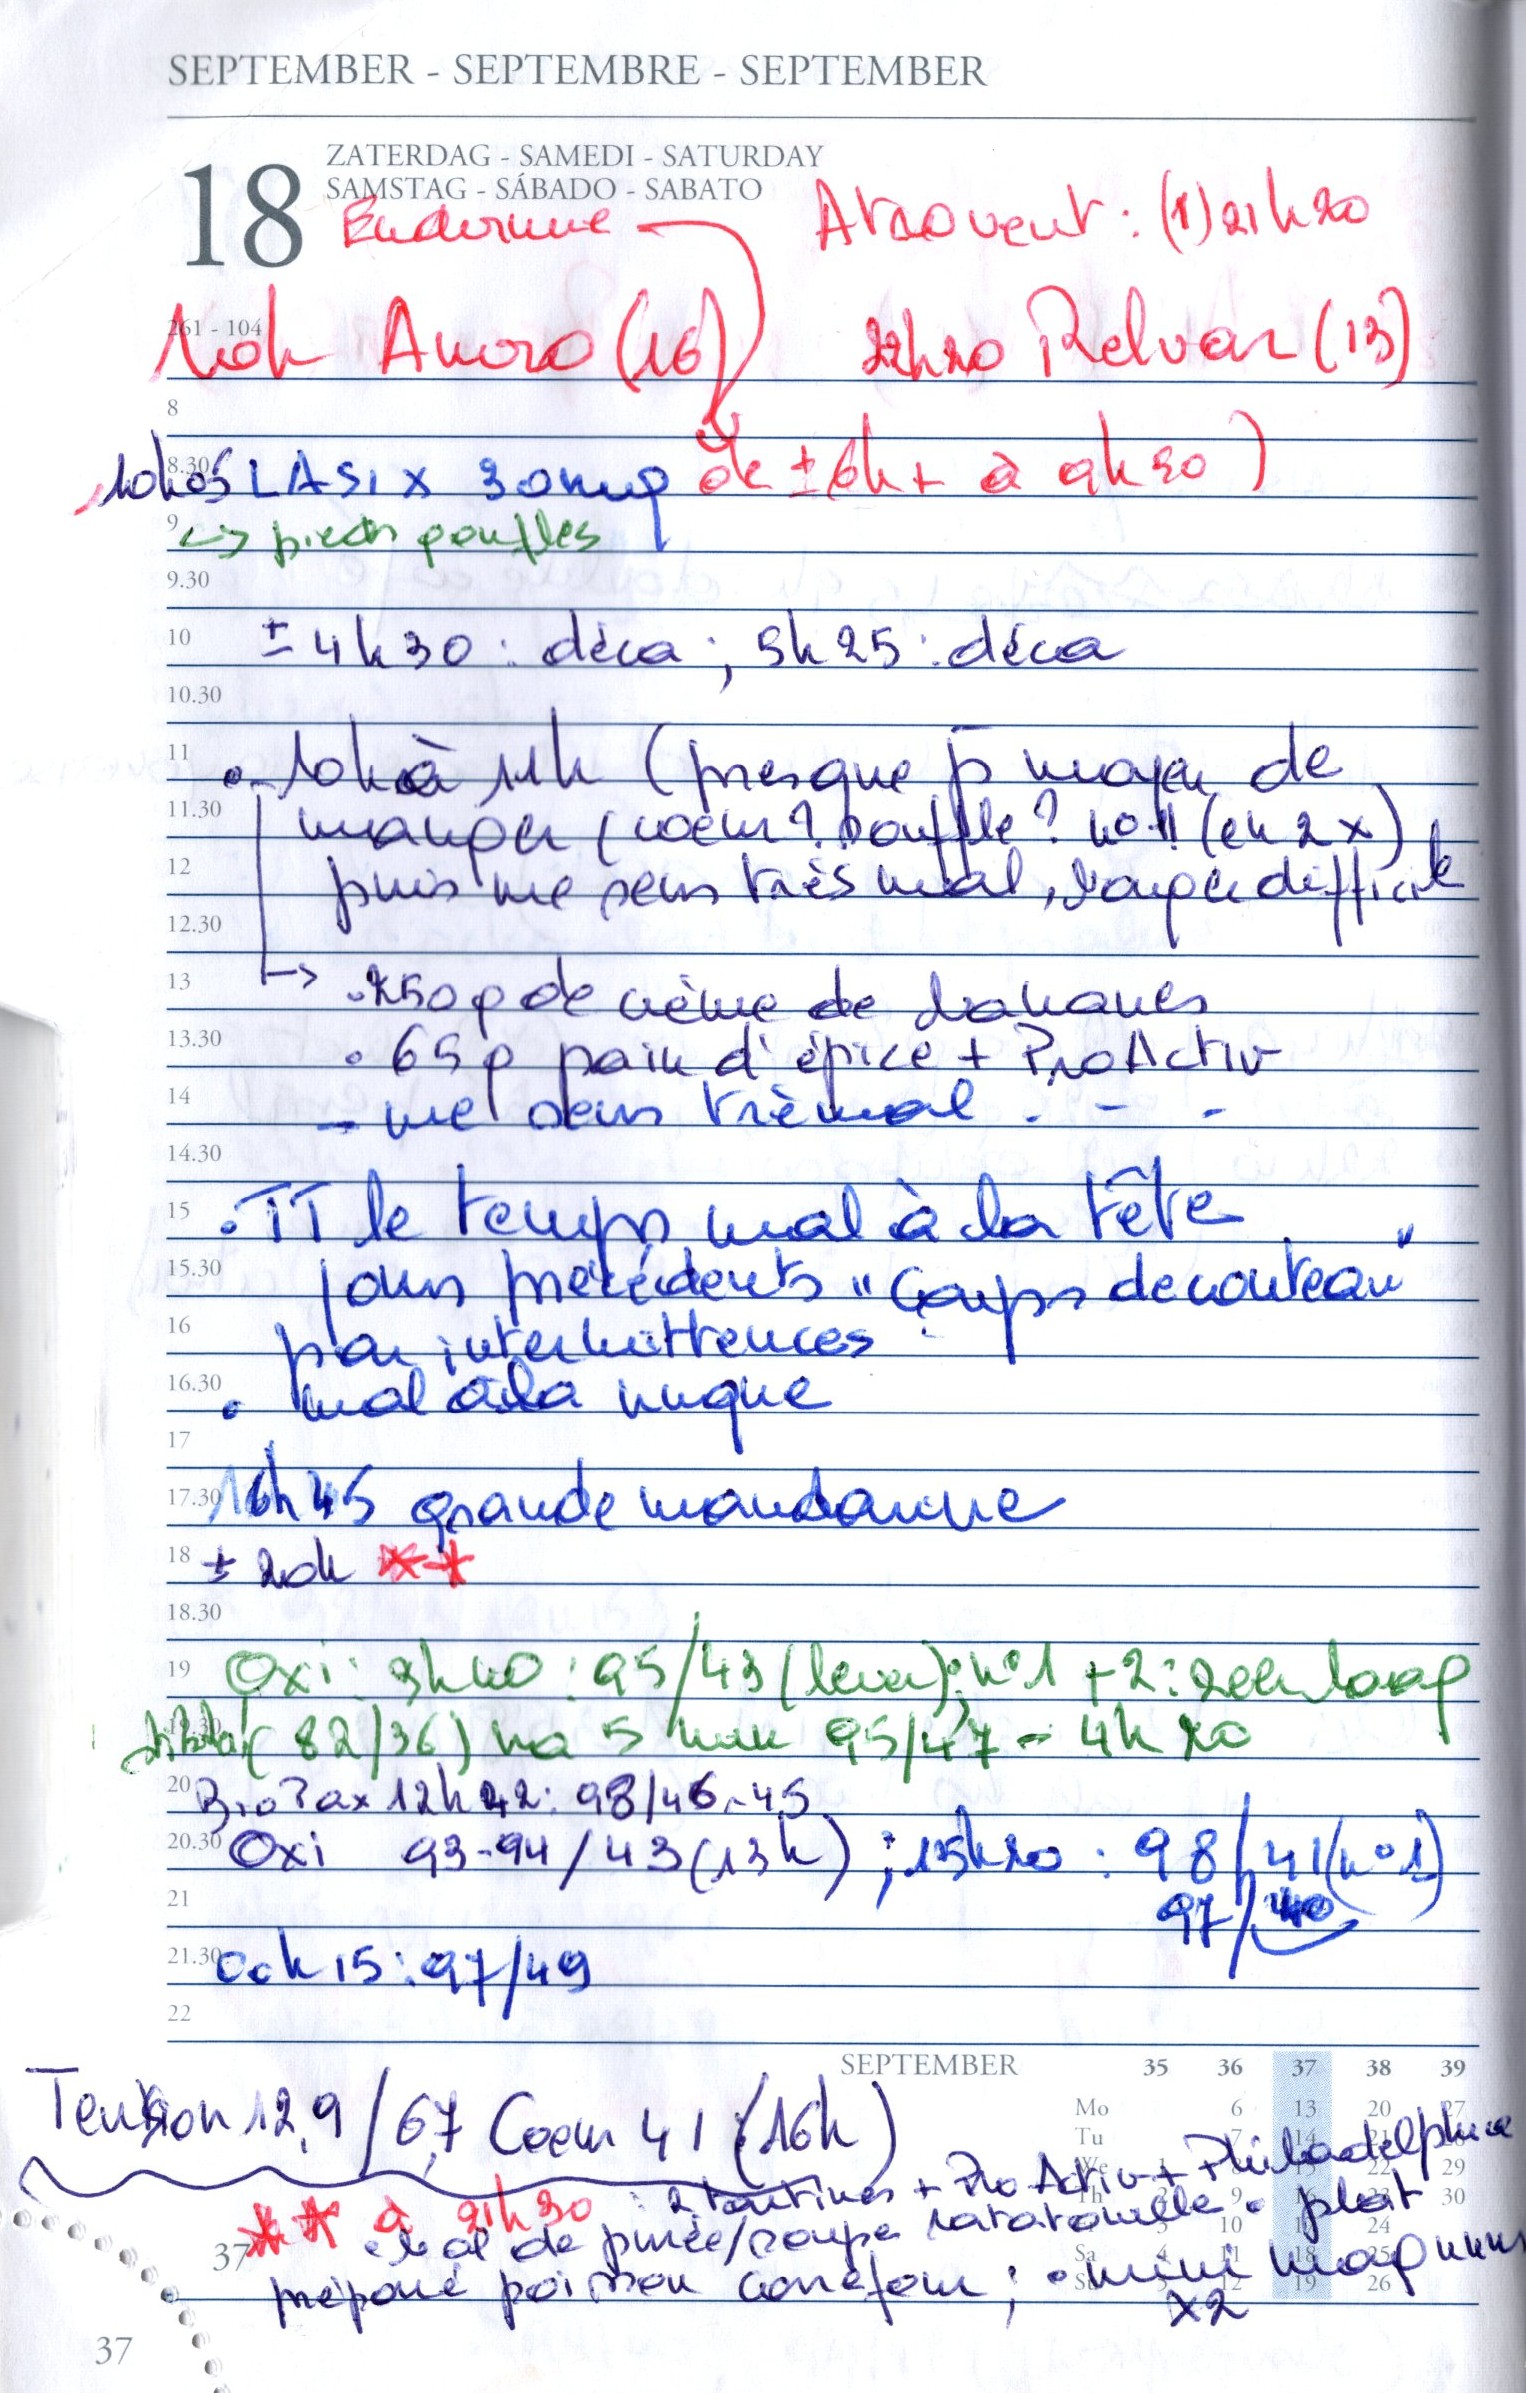 SEPTEMBER - SEPTEMBRE - SEPTEMBER
18
ZATERDAG - SAMEDI - SATURDAY
SAMSTAG - SÁBADO - SABATO
Endormie
Atrovent : (1) 21h20
261 - 104
10h Anoro (16)
22h20 Relvar (13)
8
8.30
10h05 LASIX 30mg de ± 6h + à 9h30 )
9
↳ pieds gonflés
9.30
10
± 4h30 : déca ; 5h25 : déca
10.30
11
• 10h à 11h (presque p moyen de
11.30
manger (coeur ? souffle ? no !! (en 2 x)
12
puis me sens très mal, souper difficile
12.30
13
→ . 250g de crème de bananes
13.30
• 65g pain d'épice + ProActiv
14
- me sens très mal . - -
14.30
15
• TT le temps mal à la tête
15.30
jours précédents "Coups de couteau"
16
par intermittences
16.30
• mal à la nuque
17
17.30
16h45 grande mandarine
18
± 20h **
18.30
19
Oxi : 3h40 : 95/43 (lever) ; n°1 + 2 :
19.30
(82/36) 5 min 95/47 - 4h20
20
BioPax 12h42 : 98/46-45
20.30
Oxi 93-94/43 (13h) ; 15h20 : 98/41 (n°1)
21
97/40
21.30
00h15 : 97/49
22
SEPTEMBER 35 36 37 38 39
Mo 6 13 20 27
Tu 7 14 21 28
We 15 22 29
Th 2 9 16 30
3 10 17 24
Sa 4 11 18 25
5 12 19 26
Tension 12,9/6,7 Coeur 41 (16h)
** à 21h30 : 2 tartines + ProActiv + Philadelphia
37
• bol de purée/soupe ratatouille • plat
préparé poisson carrefour ; • mini magnum
x2
37